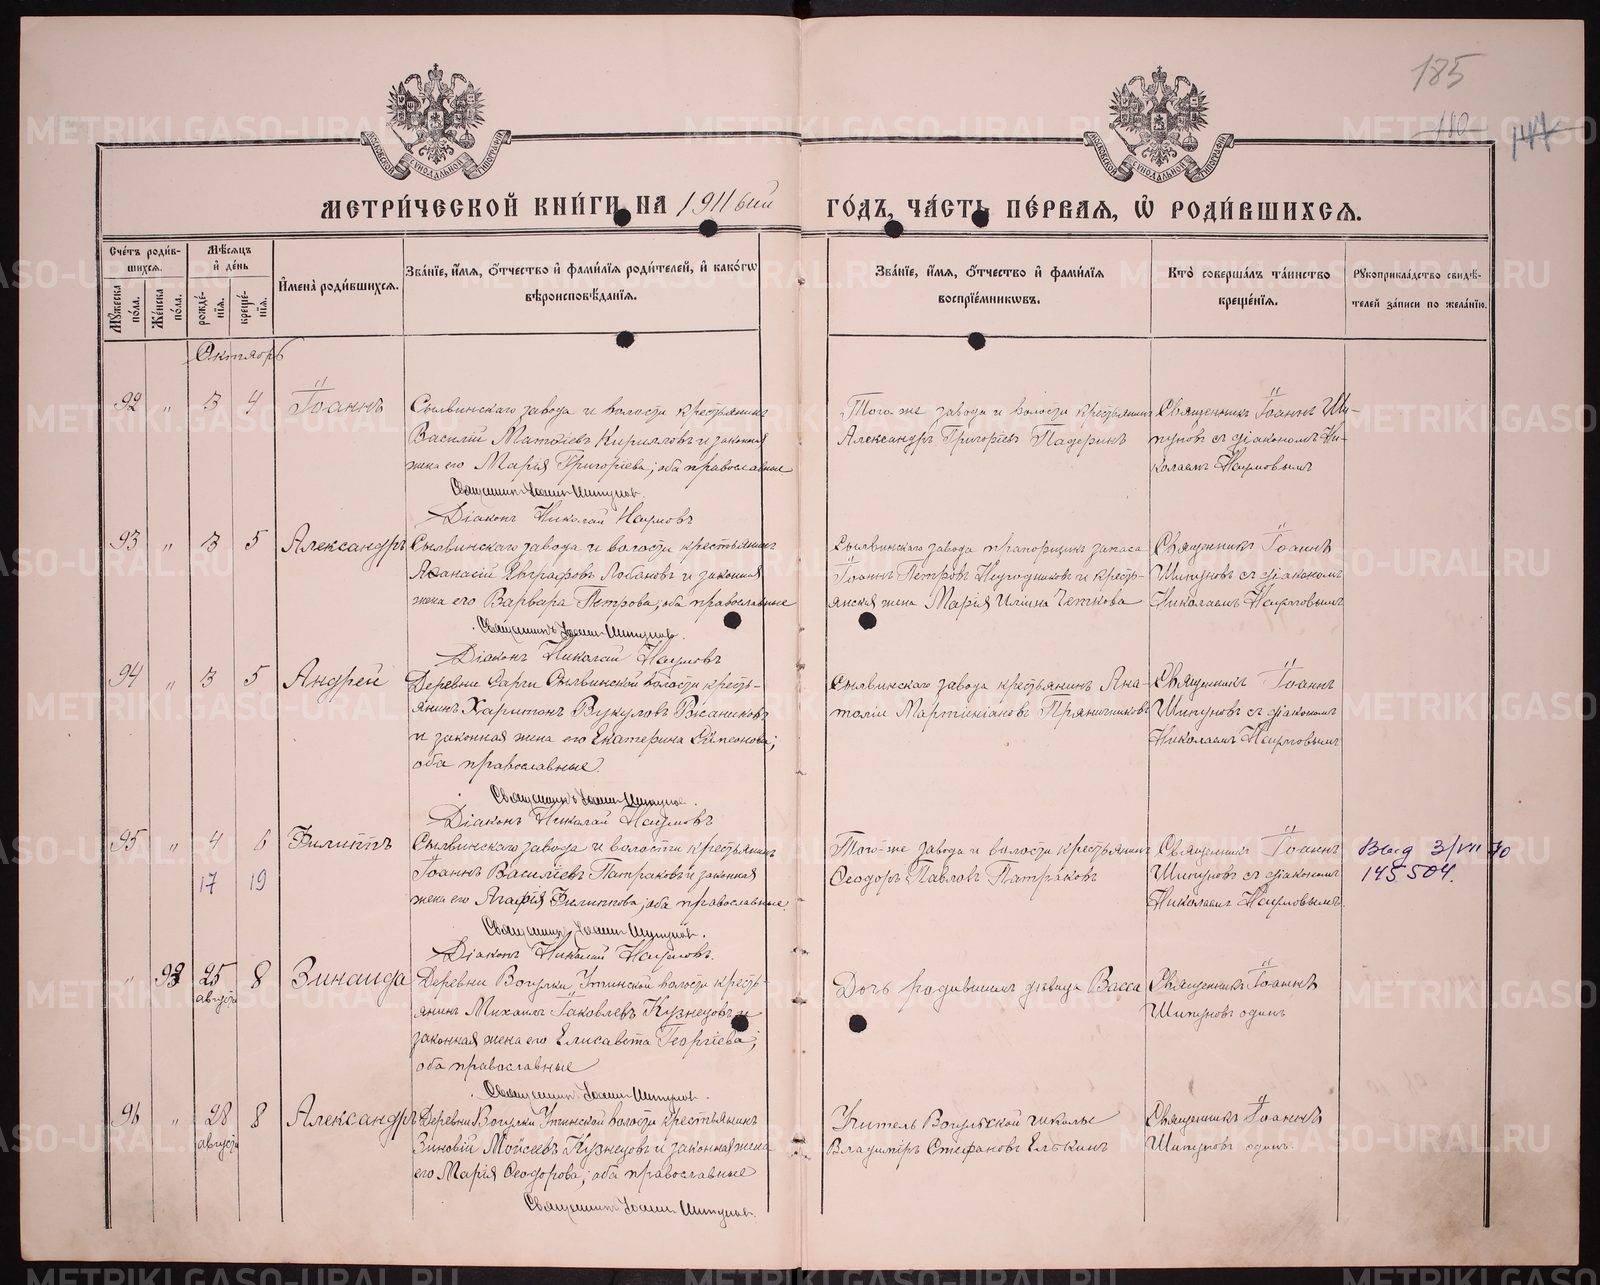 185
110
144
МЕТРИ́ЧЕСКОЙ КНИ́ГИ НА 1911 бый ГО́ДЪ, ЧА́СТЬ ПЕ́РВАЯ, Ѡ҆ РОДИ́ВШИХСЯ.
Сче́тъ роди́вшихся.
Мѣ́сяцъ и҆ де́нь
Мꙋ́жеска по́ла.
Же́нска по́ла.
рожде́нїя.
креще́нїя.
И҆мена̀ роди́вшихся.
Зва́нїе, и҆́мя, ѻ҆́тчество и҆ фами́лїя роди́телей, и҆ како́гѡ вѣроисповѣ́данїя.
Зва́нїе, и҆́мя, ѻ҆́тчество и҆ фами́лїя воспрїе́мникѡвъ.
Кто̀ соверша́лъ та́инство креще́нїя.
Рꙋкоприкла́дство свидѣ́телей за́писи по жела́нїю.
Октябрь
92 " 3 4 Іоаннъ
Сылвинскаго завода и волости крестьянинъ
Василій Матѳіевъ Кирилловъ и законная
жена его Марія Григоріева; оба православные
Священникъ Іоаннъ Шипуновъ.
Діаконъ Николай Наумовъ
Того-же завода и волости крестьянинъ
Александръ Григоріевъ Падеринъ
Священникъ Іоаннъ Ши-
пуновъ съ діакономъ Ни-
колаемъ Наумовымъ
93 " 3 5 Александръ
Сылвинскаго завода и волости крестьянинъ
Аѳанасій Евграфовъ Лобановъ и законная
жена его Варвара Петрова; оба православные
Священникъ Іоаннъ Шипуновъ.
Діаконъ Николай Наумовъ
Сылвинскаго завода прапорщикъ запаса
Іоаннъ Петровъ и кресть-
янская жена Марія Ильина Четкова
Священникъ Іоаннъ
Шипуновъ съ діакономъ
Николаемъ Наумовымъ
94 " 3 5 Андрей
Деревни Сарги Сылвинской волости кресть-
янинъ Харитонъ Вукуловъ Ржанниковъ
и законная жена его Екатерина Симеонова;
оба православные.
Священникъ Іоаннъ Шипуновъ.
Діаконъ Николай Наумовъ
Сылвинскаго завода крестьянинъ Ана-
толій Мартиніановъ Пряничниковъ
Священникъ Іоаннъ
Шипуновъ съ діакономъ
Николаемъ Наумовымъ
95 " 4 6 Филиппъ
17 19
Сылвинскаго завода и волости крестьянинъ
Іоаннъ Василіевъ Патраковъ и законная
жена его Агафія Филиппова; оба православные.
Священникъ Іоаннъ Шипуновъ.
Діаконъ Николай Наумовъ.
Того-же завода и волости крестьянинъ
Ѳеодоръ Павловъ Патраковъ
Священникъ Іоаннъ
Шипуновъ съ діакономъ
Николаемъ Наумовымъ.
Выд 3/VII 70
145504.
" 93 25 августа 8 Зинаида
Деревни Вогулки Уткинской волости кресть-
янинъ Михаилъ Іаковлевъ Кузнецовъ и
законная жена его Елисавета Георгіева;
оба православные
Священникъ Іоаннъ Шипуновъ.
Дочь родившихъ дѣвица Васса
Священникъ Іоаннъ
Шипуновъ одинъ
96 " 28 августа 8 Александръ
Деревни Вогулки Уткинской волости крестьянинъ
Зиновій Моисеевъ Кузнецовъ и законная жена
его Марія Ѳеодорова; оба православные
Священникъ Іоаннъ Шипуновъ.
Учитель Вогульской школы
Владиміръ Стефановъ Елькинъ
Священникъ Іоаннъ
Шипуновъ одинъ.
METRIKI.GASO-URAL.RU